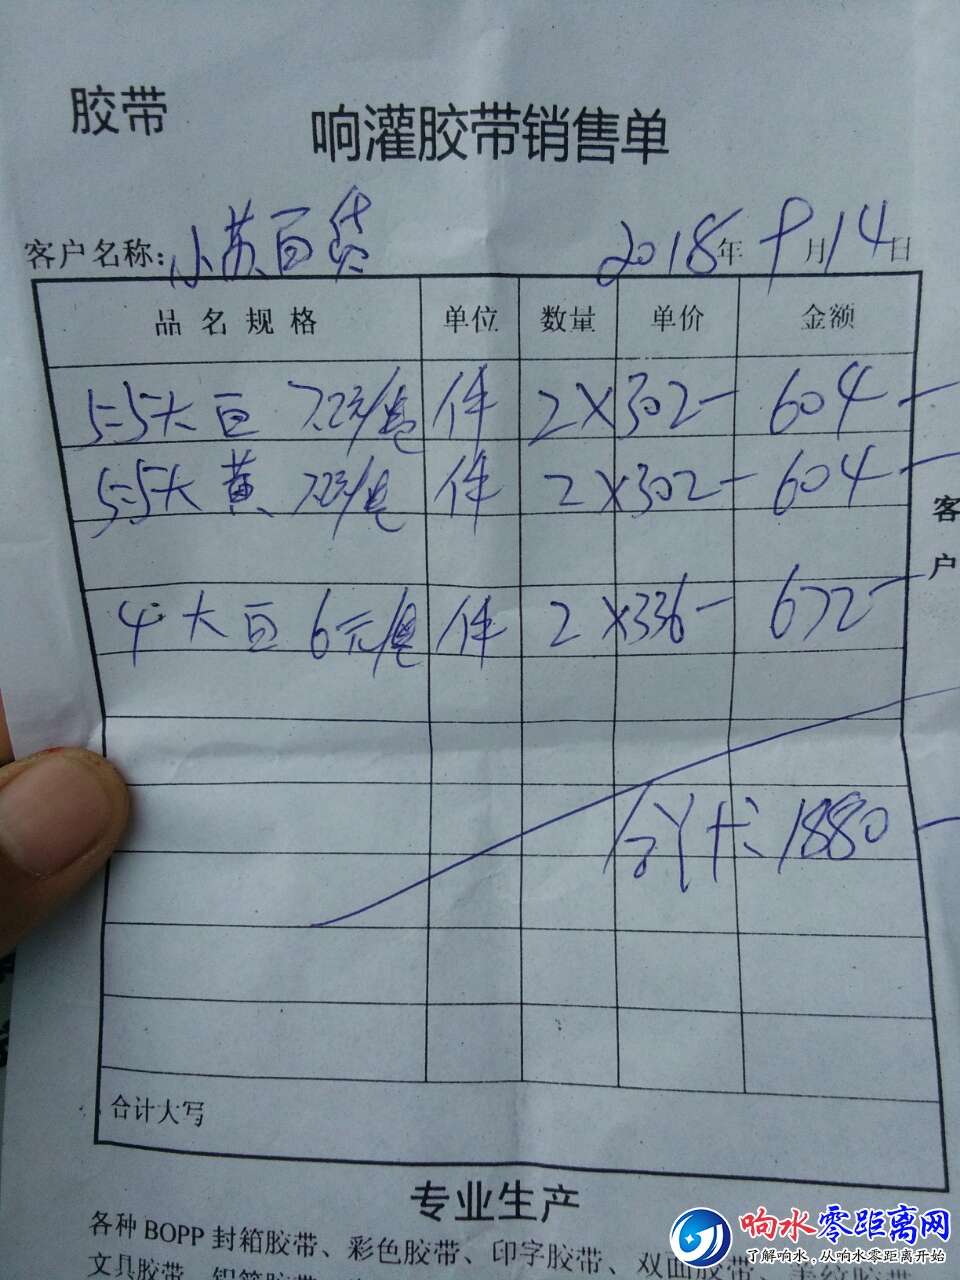 胶带
响灌胶带销售单
客户名称: 小苏百货 2018年9月14日
品名规格 单位 数量 单价 金额
5.5大 7.2元/卷 件 2 × 302- 604-
5.5大黄 7.2元/卷 件 2 × 302- 604-
客户
4 大 6元/卷 件 2 × 336- 672-
合计: 1880-
合计大写
专业生产
各种 BOPP 封箱胶带、彩色胶带、印字胶带、双面胶带、
文具胶带、铝箔胶带
响水零距离网
了解响水,从响水零距离开始